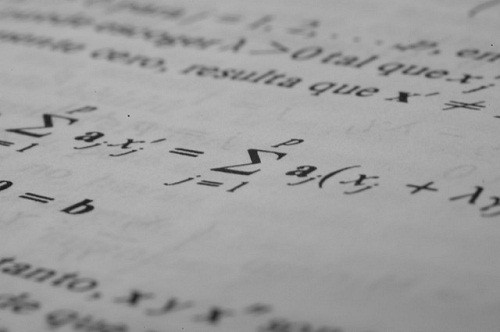 para j = 1, 2, ..., p, en
escoger λ > 0 tal que x_j
cero, resulta que x' ≠
∑_{j=1}^{p} a_j x_j' = ∑_{j=1}^{p} a_j(x_j + λy
= b
tanto, x y x''
de que